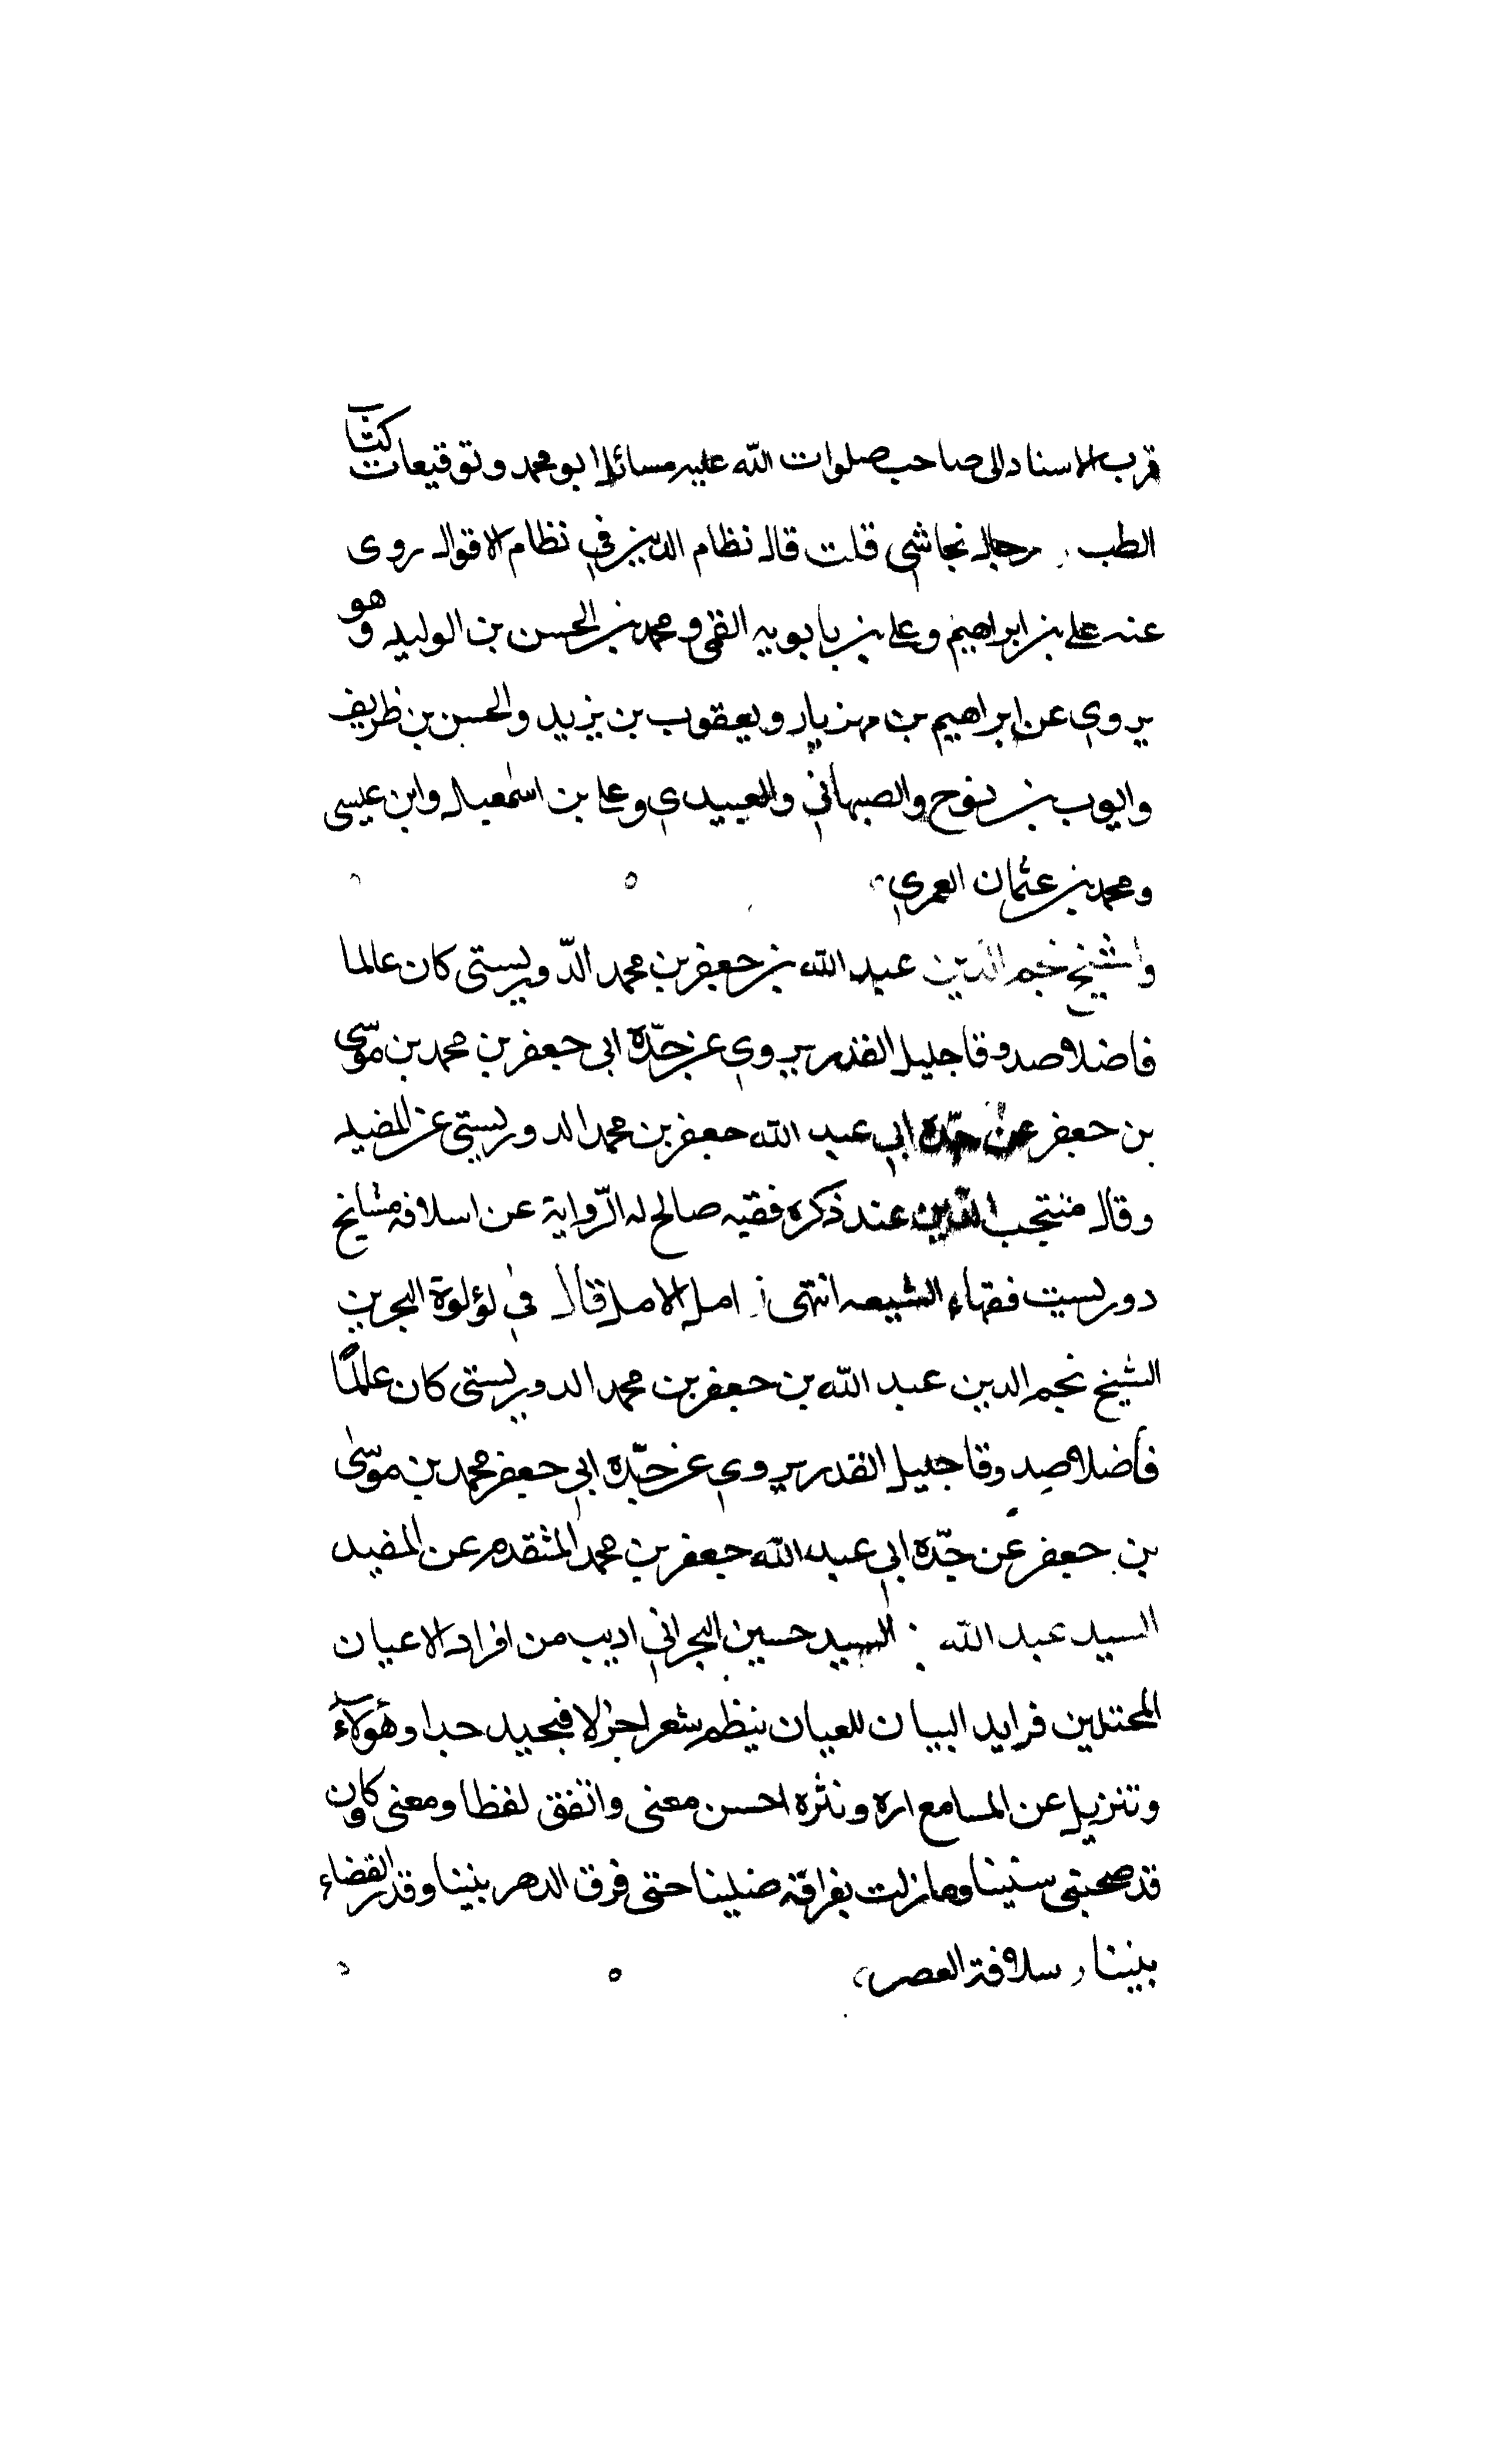 قرب الاسناد الى صاحب صلوات الله عليه مسائل ابو محمد و توقيعات كتاب
الطب رجال نجاشي قلت قال نظام الدين في نظام الاقوال روى
عنه علي بن ابراهيم و علي بن بابويه القمي و محمد بن الحسن بن الوليد و هو
يروي عن ابراهيم بن مهزيار و يعقوب بن يزيد والحسن بن ظريف
وايوب بن نوح والصبهاني والعبيدي و علي بن اسمعيل وابن عيسى
و محمد بن عثمان العمري
والشيخ نجم الدين عبد الله بن جعفر بن محمد الدّوريستى كان عالما
فاضلا صدوقا جليل القدر يروي عن جدّه ابى جعفر بن محمد بن موسى
بن جعفر عن جدّه ابي عبد الله جعفر بن محمد الدوريستي عن المفيد
و قال منتجب الدّين عند ذكره فقيه صالح له الرّواية عن اسلافه مشايخ
دوريست فقهاء الشيعه انتهى امل الامل قال في لؤلوة البحرين
الشيخ نجم الدين عبد الله بن جعفر بن محمد الدوريستى كان عالمًا
فاضلا صدوقا جليل القدر يروي عن جدّه ابي جعفر محمد بن موسى
بن جعفر عن جدّه ابي عبد الله جعفر بن محمد المتقدم عن المفيد
السيد عبد الله بن السيد حسين البحراني اديب من افراد الاعيان
فرايد البيان للعيان ينظم شعرا جزلا فيجيد
عن المسامع ونثره احسن معنى واتفق لفظا ومعنى وكان
قد صحبنى سنينا وما زلت بفراقه ضنينا حتى فرق الدهر بيننا و قدر القضاء
بيننا سلافة العصر